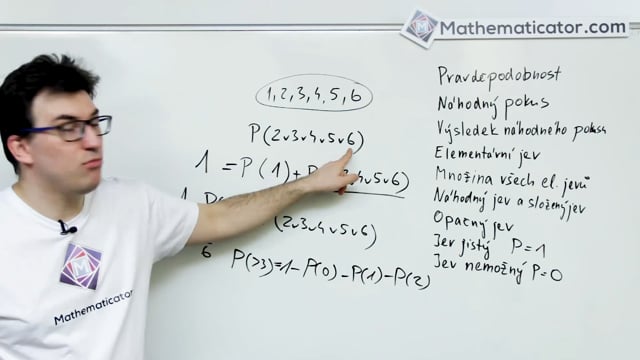 Mathematicator.com
1, 2, 3, 4, 5, 6
P(2∨3∨4∨5∨6)
1 = P(1) + P 4∨5∨6)
(2∨3∨4∨5∨6)
6
P(>3)=1-P(0)-P(1)-P(2)
Pravděpodobnost
Náhodný pokus
Výsledek náhodného pokusu
Elementární jev
Množina všech el. jevů
Náhodný jev a složený jev
Opačný jev
Jev jistý P=1
Jev nemožný P=0
Mathematicator